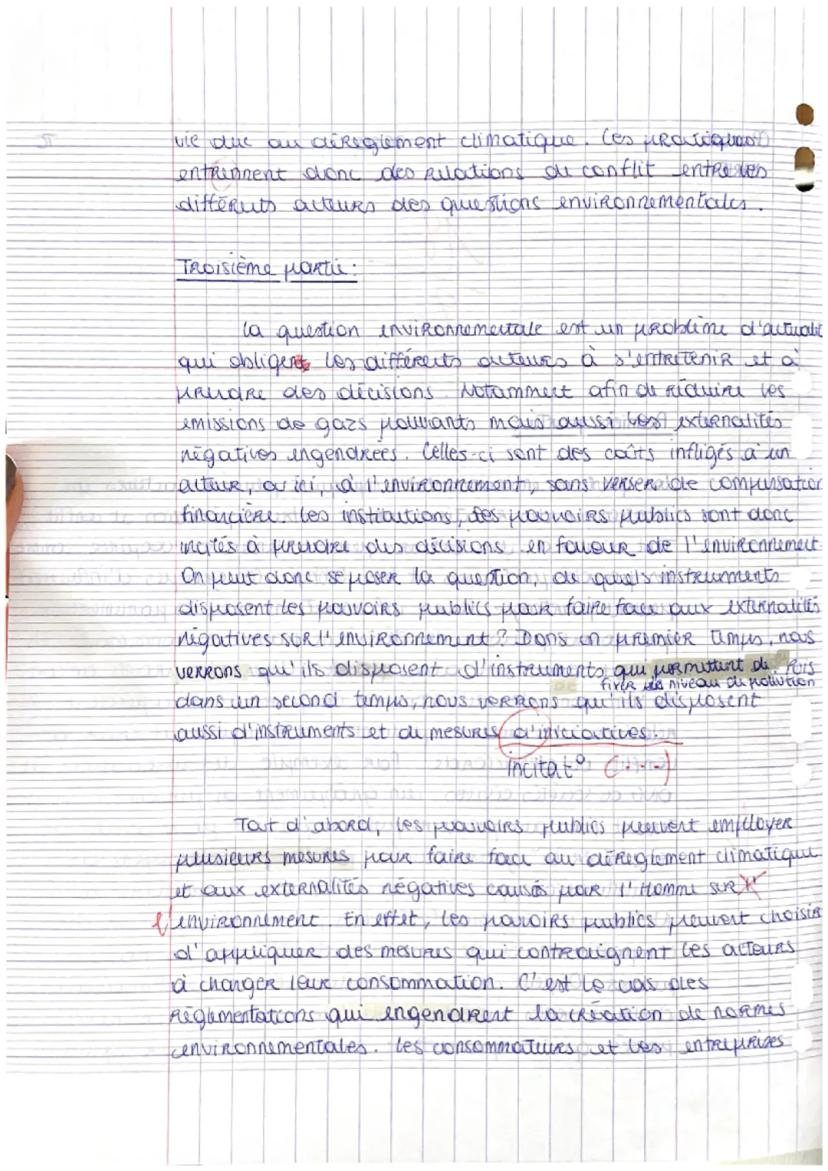 vie due au dérèglement climatique. Ces pratiques
entrennent donc des relations de conflit entre les
différents acteurs des questions environnementales.
Troisième partie :
La question environnementale est un problème d'actualité
qui obligent les différents acteurs à s'entretenir et à
prendre des décisions. Notamment afin de réduire les
émissions de gazs polluants mais aussi les externalités
négatives engendrées. Celles-ci sont des coûts infligés à un
acteur, ou ici, à l'environnement, sans verser de compensation
financière. Les institutions, les pouvoirs publics sont donc
incités à prendre des décisions en faveur de l'environnement.
On peut donc se poser la question, de quels instruments
disposent les pouvoirs publics pour faire face aux externalités
négatives sur l'environnement ? Dans un premier temps, nous
verrons qu'ils disposent d'instruments qui permettent de fixer un niveau de pollution. Puis
dans un second temps, nous verrons qu'ils disposent
aussi d'instruments et de mesures d'iniciatives.
incitat° (....)
Tout d'abord, les pouvoirs publics peuvent employer
plusieurs mesures pour faire face au dérèglement climatique
et aux externalités négatives causés par l'Homme sur
l'environnement. En effet, les pouvoirs publics peuvent choisir
d'appliquer des mesures qui contraignent les acteurs
à changer leur consommation. C'est le cas des
réglementations qui engendrent la création de normes
environnementales. Les consommateurs et les entreprises